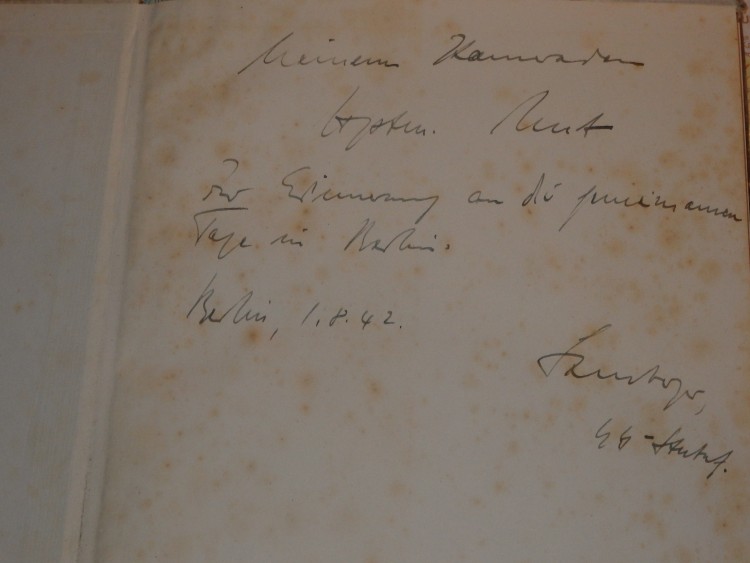 Meinem Kameraden
Hptm.
Zur Erinnerung an die gemeinsamen
Tage in Berlin.
Berlin, 1.8.42.
SS-Stubaf.